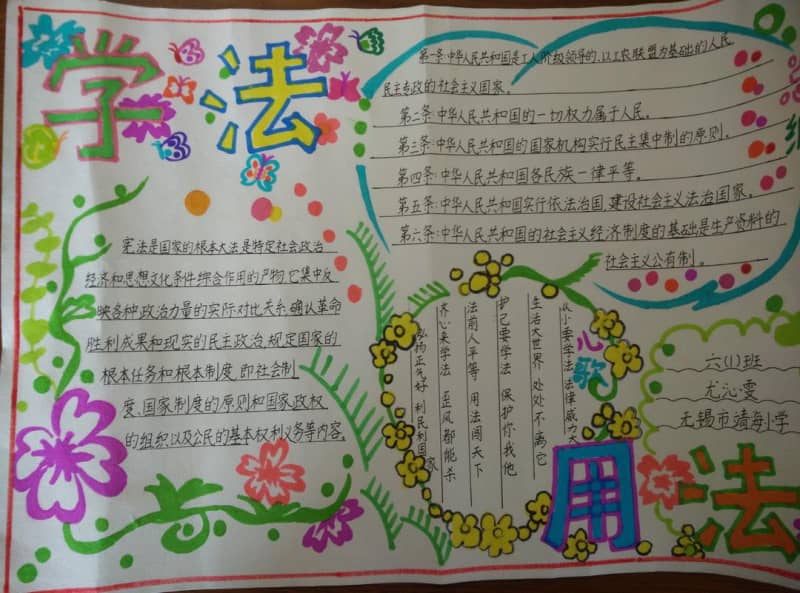 学法
第一条:中华人民共和国是工人阶级领导的,以工农联盟为基础的人民
民主专政的社会主义国家。
第二条:中华人民共和国的一切权力属于人民。
第三条:中华人民共和国的国家机构实行民主集中制的原则。
第四条:中华人民共和国各民族一律平等。
第五条:中华人民共和国实行依法治国,建设社会主义法治国家。
第六条:中华人民共和国的社会主义经济制度的基础是生产资料的
社会主义公有制。
宪法是国家的根本大法是特定社会政治
经济和思想文化条件综合作用的产物,它集中反
映各种政治力量的实际对比关系,确认革命
胜利成果和现实的民主政治,规定国家的
根本任务和根本制度,即社会制
度、国家制度的原则和国家政权
的组织以及公民的基本权利义务等内容。
儿歌
从小要学法 法律威力大
生活大世界 处处不离它
护己要学法 保护你我他
法前人平等 用法闯天下
齐心来学法 歪风都能杀
弘扬正气好 利民利国家
六(1)班
尤沁雯
无锡市靖海小学
用法